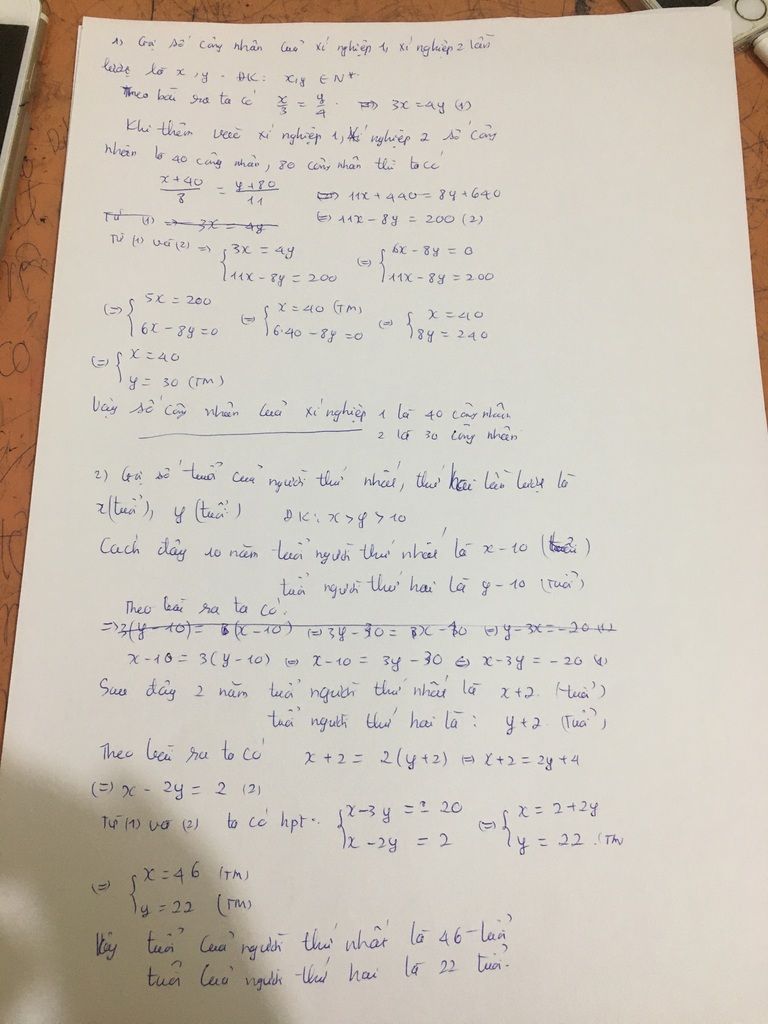 1) Gọi số công nhân của xí nghiệp 1, xí nghiệp 2 lần
lượt là x, y. ĐK: x,y ∈ N*.
Theo bài ra ta có x/3 = y/4. <=> 3x = 4y (1)
Khi thêm vào xí nghiệp 1, xí nghiệp 2 số công
nhân là 40 công nhân, 80 công nhân thì ta có
(x+40)/8 = (y+80)/11 <=> 11x + 440 = 8y + 640
Từ (1) => 3x = 4y <=> 11x - 8y = 200 (2)
Từ (1) và (2) => { 3x = 4y ; 11x - 8y = 200 <=> { 6x - 8y = 0 ; 11x - 8y = 200
<=> { 5x = 200 ; 6x - 8y = 0 <=> { x = 40 (TM) ; 6.40 - 8y = 0 <=> { x = 40 ; 8y = 240
<=> { x = 40 ; y = 30 (TM)
Vậy số công nhân của xí nghiệp 1 là 40 công nhân
2 là 30 công nhân
2) Gọi số tuổi của người thứ nhất, thứ hai lần lượt là
x (tuổi), y (tuổi) ĐK: x > y > 10
Cách đây 10 năm tuổi người thứ nhất là x - 10 (tuổi)
tuổi người thứ hai là y - 10 (tuổi)
Theo bài ra ta có:
=> 3(y - 10) = (x - 10) <=> 3y - 30 = x - 10 <=> y - 3x = -20 (1)
x - 10 = 3(y - 10) <=> x - 10 = 3y - 30 <=> x - 3y = -20 (1)
Sau đây 2 năm tuổi người thứ nhất là x + 2 (tuổi)
tuổi người thứ hai là: y + 2 (tuổi)
Theo bài ra ta có x + 2 = 2(y + 2) <=> x + 2 = 2y + 4
<=> x - 2y = 2 (2)
Từ (1) và (2) ta có hpt: { x - 3y = -20 ; x - 2y = 2 <=> { x = 2 + 2y ; y = 22 (TM
<=> { x = 46 (TM) ; y = 22 (TM)
Vậy tuổi của người thứ nhất là 46 tuổi
tuổi của người thứ hai là 22 tuổi.